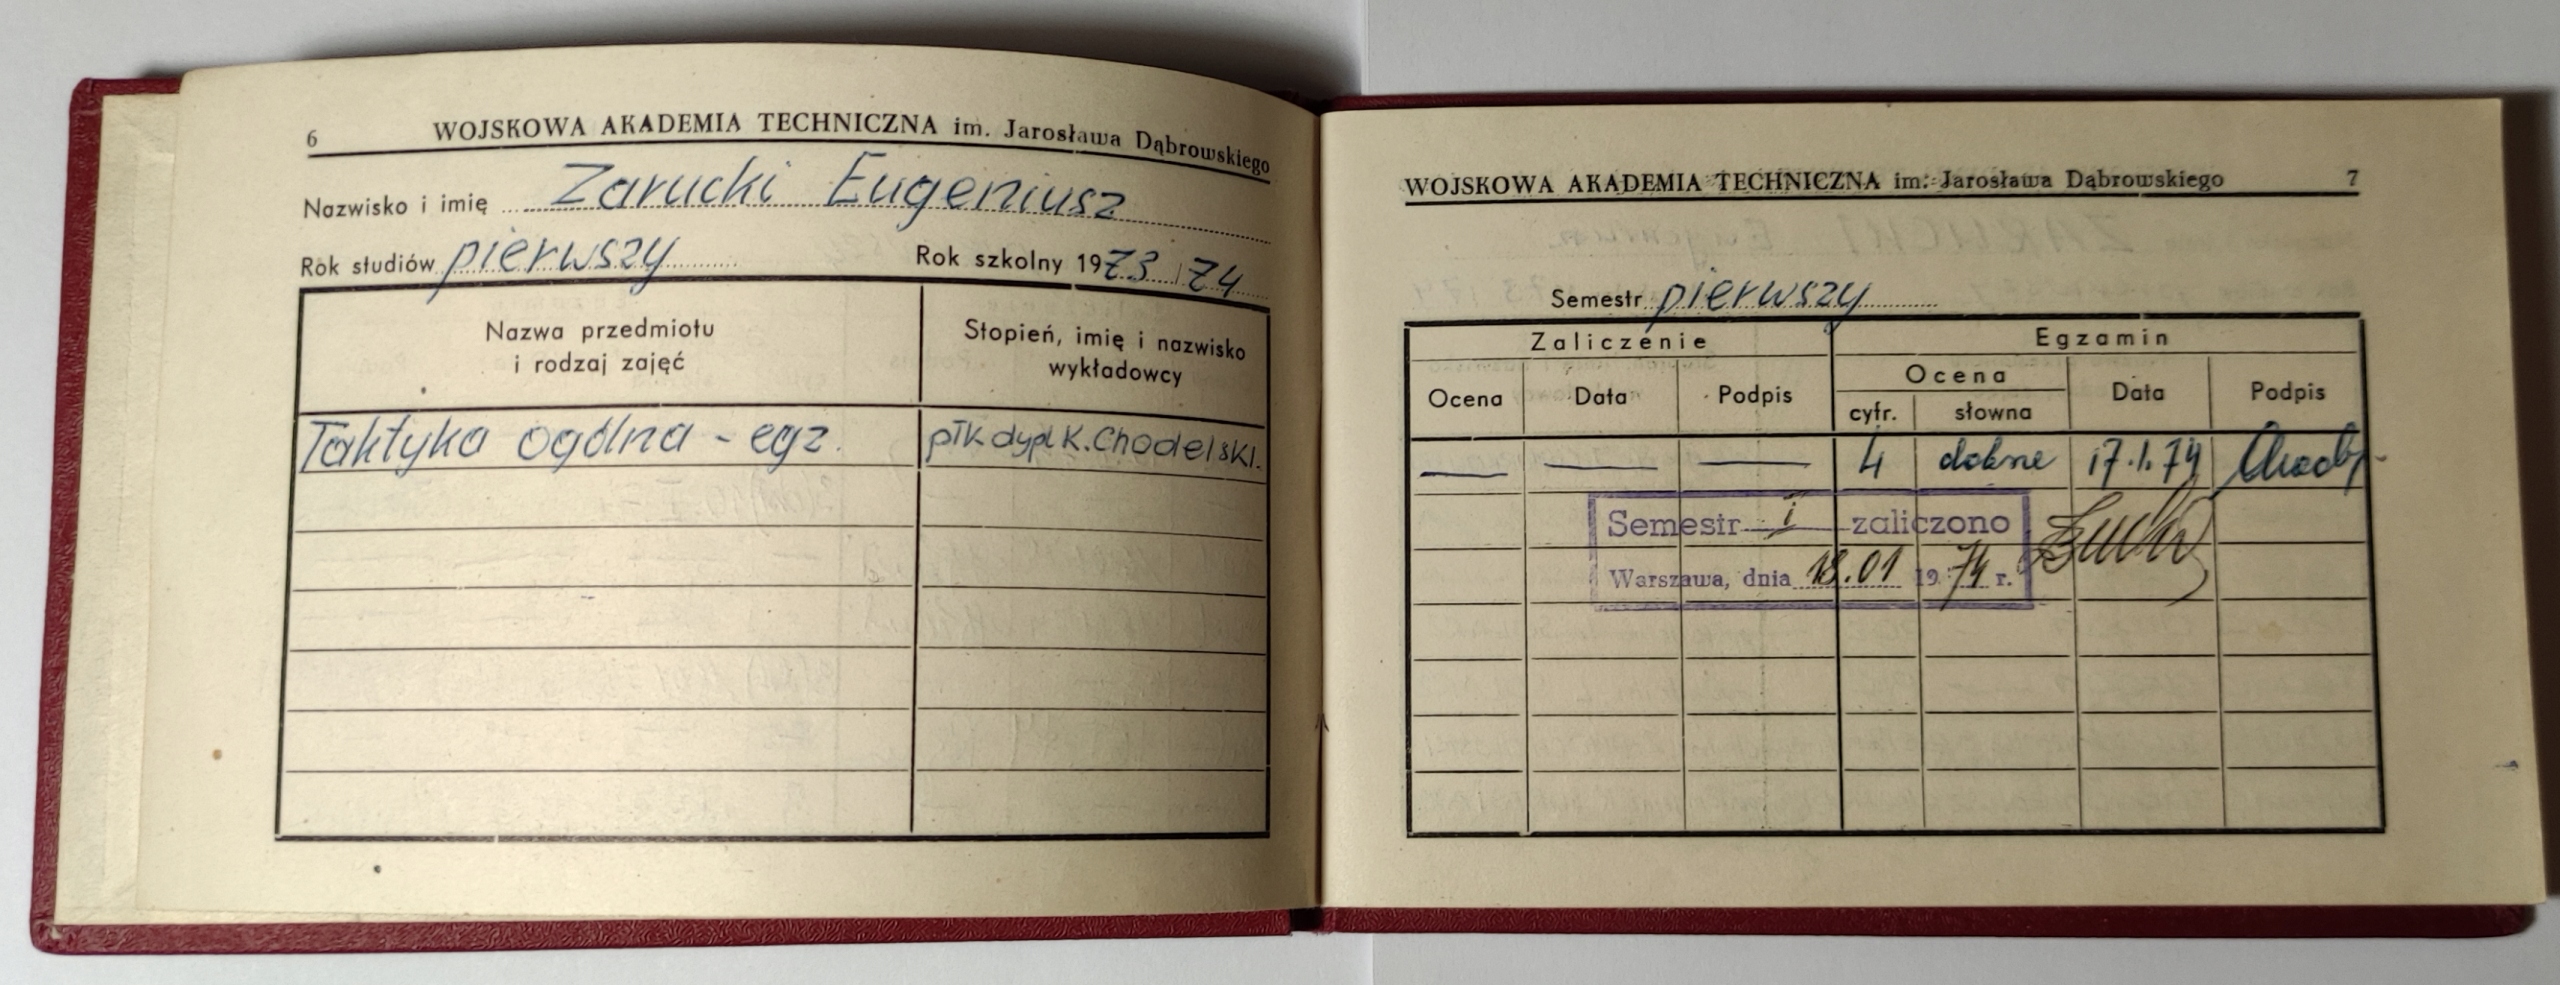 6 WOJSKOWA AKADEMIA TECHNICZNA im. Jarosława Dąbrowskiego
Nazwisko i imię Zarucki Eugeniusz
Rok studiów pierwszy Rok szkolny 1973/74
Nazwa przedmiotu
i rodzaj zajęć
Stopień, imię i nazwisko
wykładowcy
Taktyka ogólna - egz. płk dypl K. Chodelski.
WOJSKOWA AKADEMIA TECHNICZNA im. Jarosława Dąbrowskiego 7
Semestr pierwszy
Zaliczenie Egzamin
Ocena Data Podpis Ocena Data Podpis
cyfr. słowna
— — — 4 dobrze 17.1.74
Semestr I zaliczono
Warszawa, dnia 18.01 1974 r.